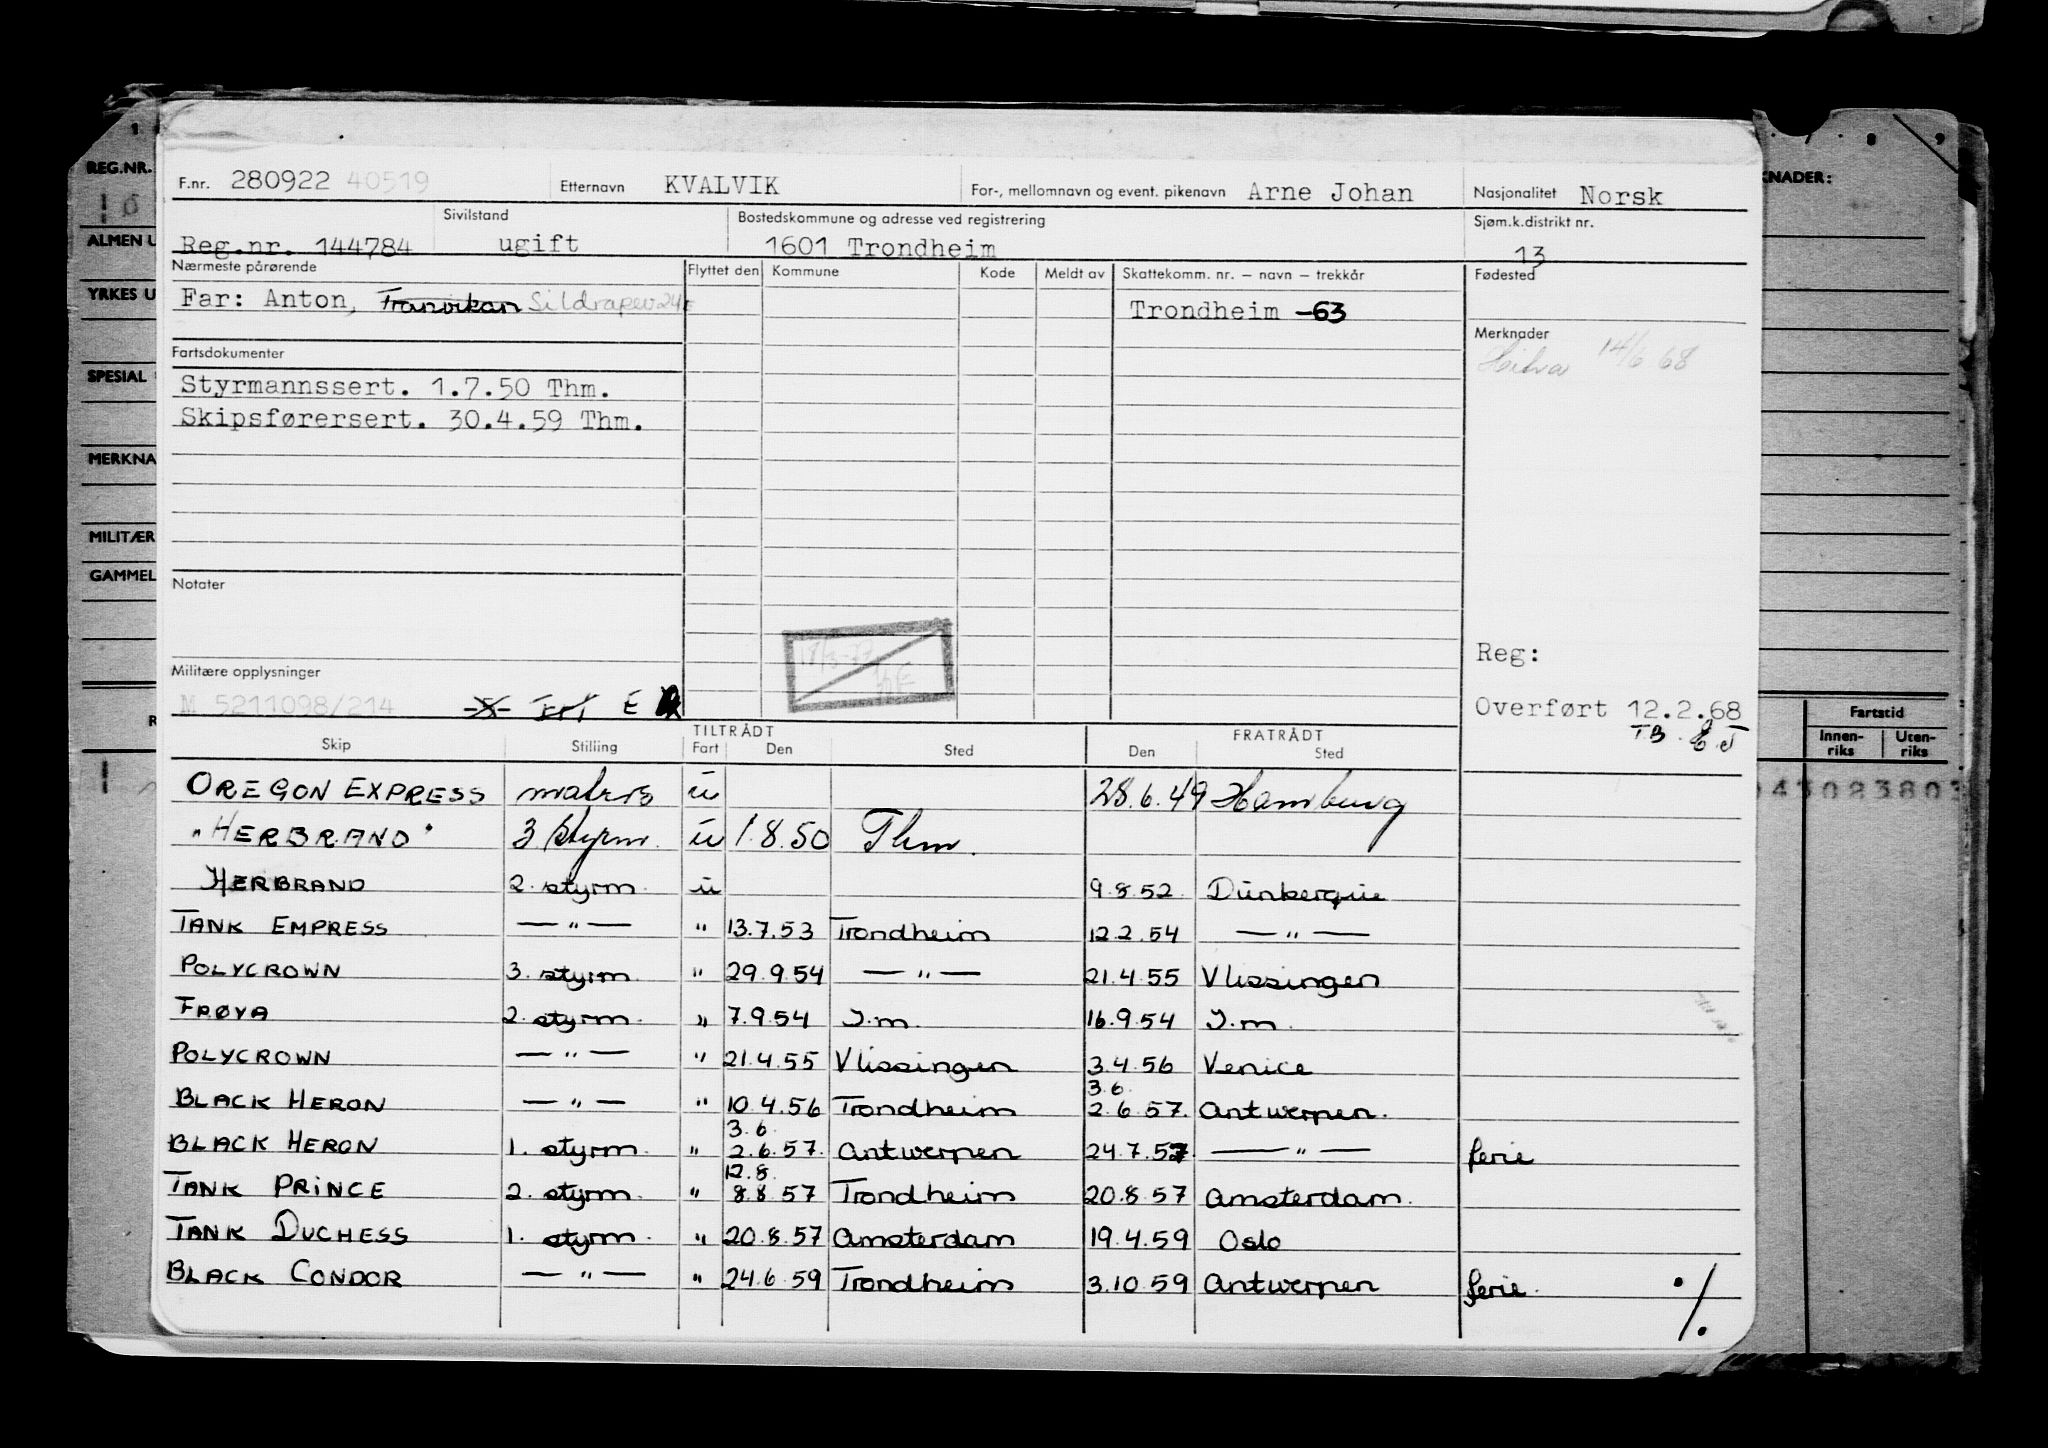 1 7 8 9
REG.NR. KNADER:
F.nr. 280922 40519 Etternavn KVALVIK For-, mellomnavn og event. pikenavn Arne Johan Nasjonalitet Norsk
Sivilstand Bostedskommune og adresse ved registrering Sjøm.k.distrikt nr.
ALMEN U
Reg.nr. 144784 ugift 1601 Trondheim 13
Nærmeste pårørende Flyttet den Kommune Kode Meldt av Skattekomm. nr. — navn — trekkår Fødested
YRKES U
Far: Anton, Tranvikan Sildrapev 24E Trondheim -63
Merknader
14/6 68
Fartsdokumenter
SPESIAL
Styrmannssert. 1.7.50 Thm.
Skipsførersert. 30.4.59 Thm.
MERKNA
MILITÆR
GAMMEL
Notater
Reg:
Militære opplysninger
M 5211098/214 E
Overført 12.2.68
TB.
Fartstid
Innen-riks Uten-riks
TILTRÅDT FRATRÅDT
Skip Stilling Fart Den Sted Den Sted
OREGON EXPRESS matros u 28.6.49 Hamburg
"HERBRAND" 3 styrm. u 1.8.50 Thm.
HERBRAND 2. styrm. u 9.8.52. Dünkerque
TANK EMPRESS — " — " 13.7.53 Trondheim 12.2.54 — " —
POLYCROWN 3. styrm. " 29.9.54 — " — 21.4.55 Vlissingen
FRØYA 2. styrm. " 7.9.54 T.m. 16.9.54 T.m.
POLYCROWN — " — " 21.4.55 Vlissingen 3.4.56 Venice
3.6.
BLACK HERON — " — " 10.4.56 Trondheim 2.6.57. Antwerpen.
3.6.
BLACK HERON 1. styrm. " 2.6.57. Antwerpen 24.7.57 — " — ferie
12.8.
TANK PRINCE 2. styrm. " 8.8.57 Trondheim 20.8.57 Amsterdam.
TANK DUCHESS 1. styrm. " 20.8.57 Amsterdam 19.4.59 Oslo
BLACK CONDOR — " — " 24.6.59 Trondheim 3.10.59 Antwerpen ferie. ./.